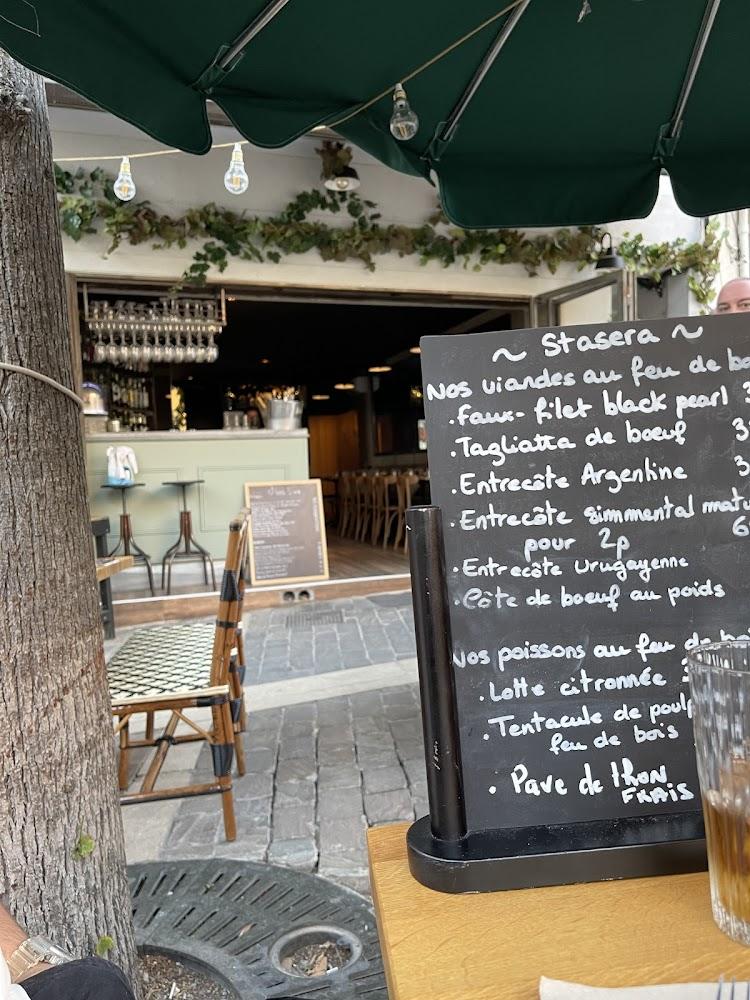 ~ Stasera ~
Nos viandes au feu de bo
. Faux-filet black pearl 3
. Tagliatta de boeuf 3
. Entrecôte Argentine 3
. Entrecôte simmental matu
pour 2p 6
. Entrecôte Urugayenne
. Côte de boeuf au poids
Nos poissons au feu de boi
. Lotte citronnée
. Tentacule de poulp
feu de bois
. Pave de thon
FRAIS